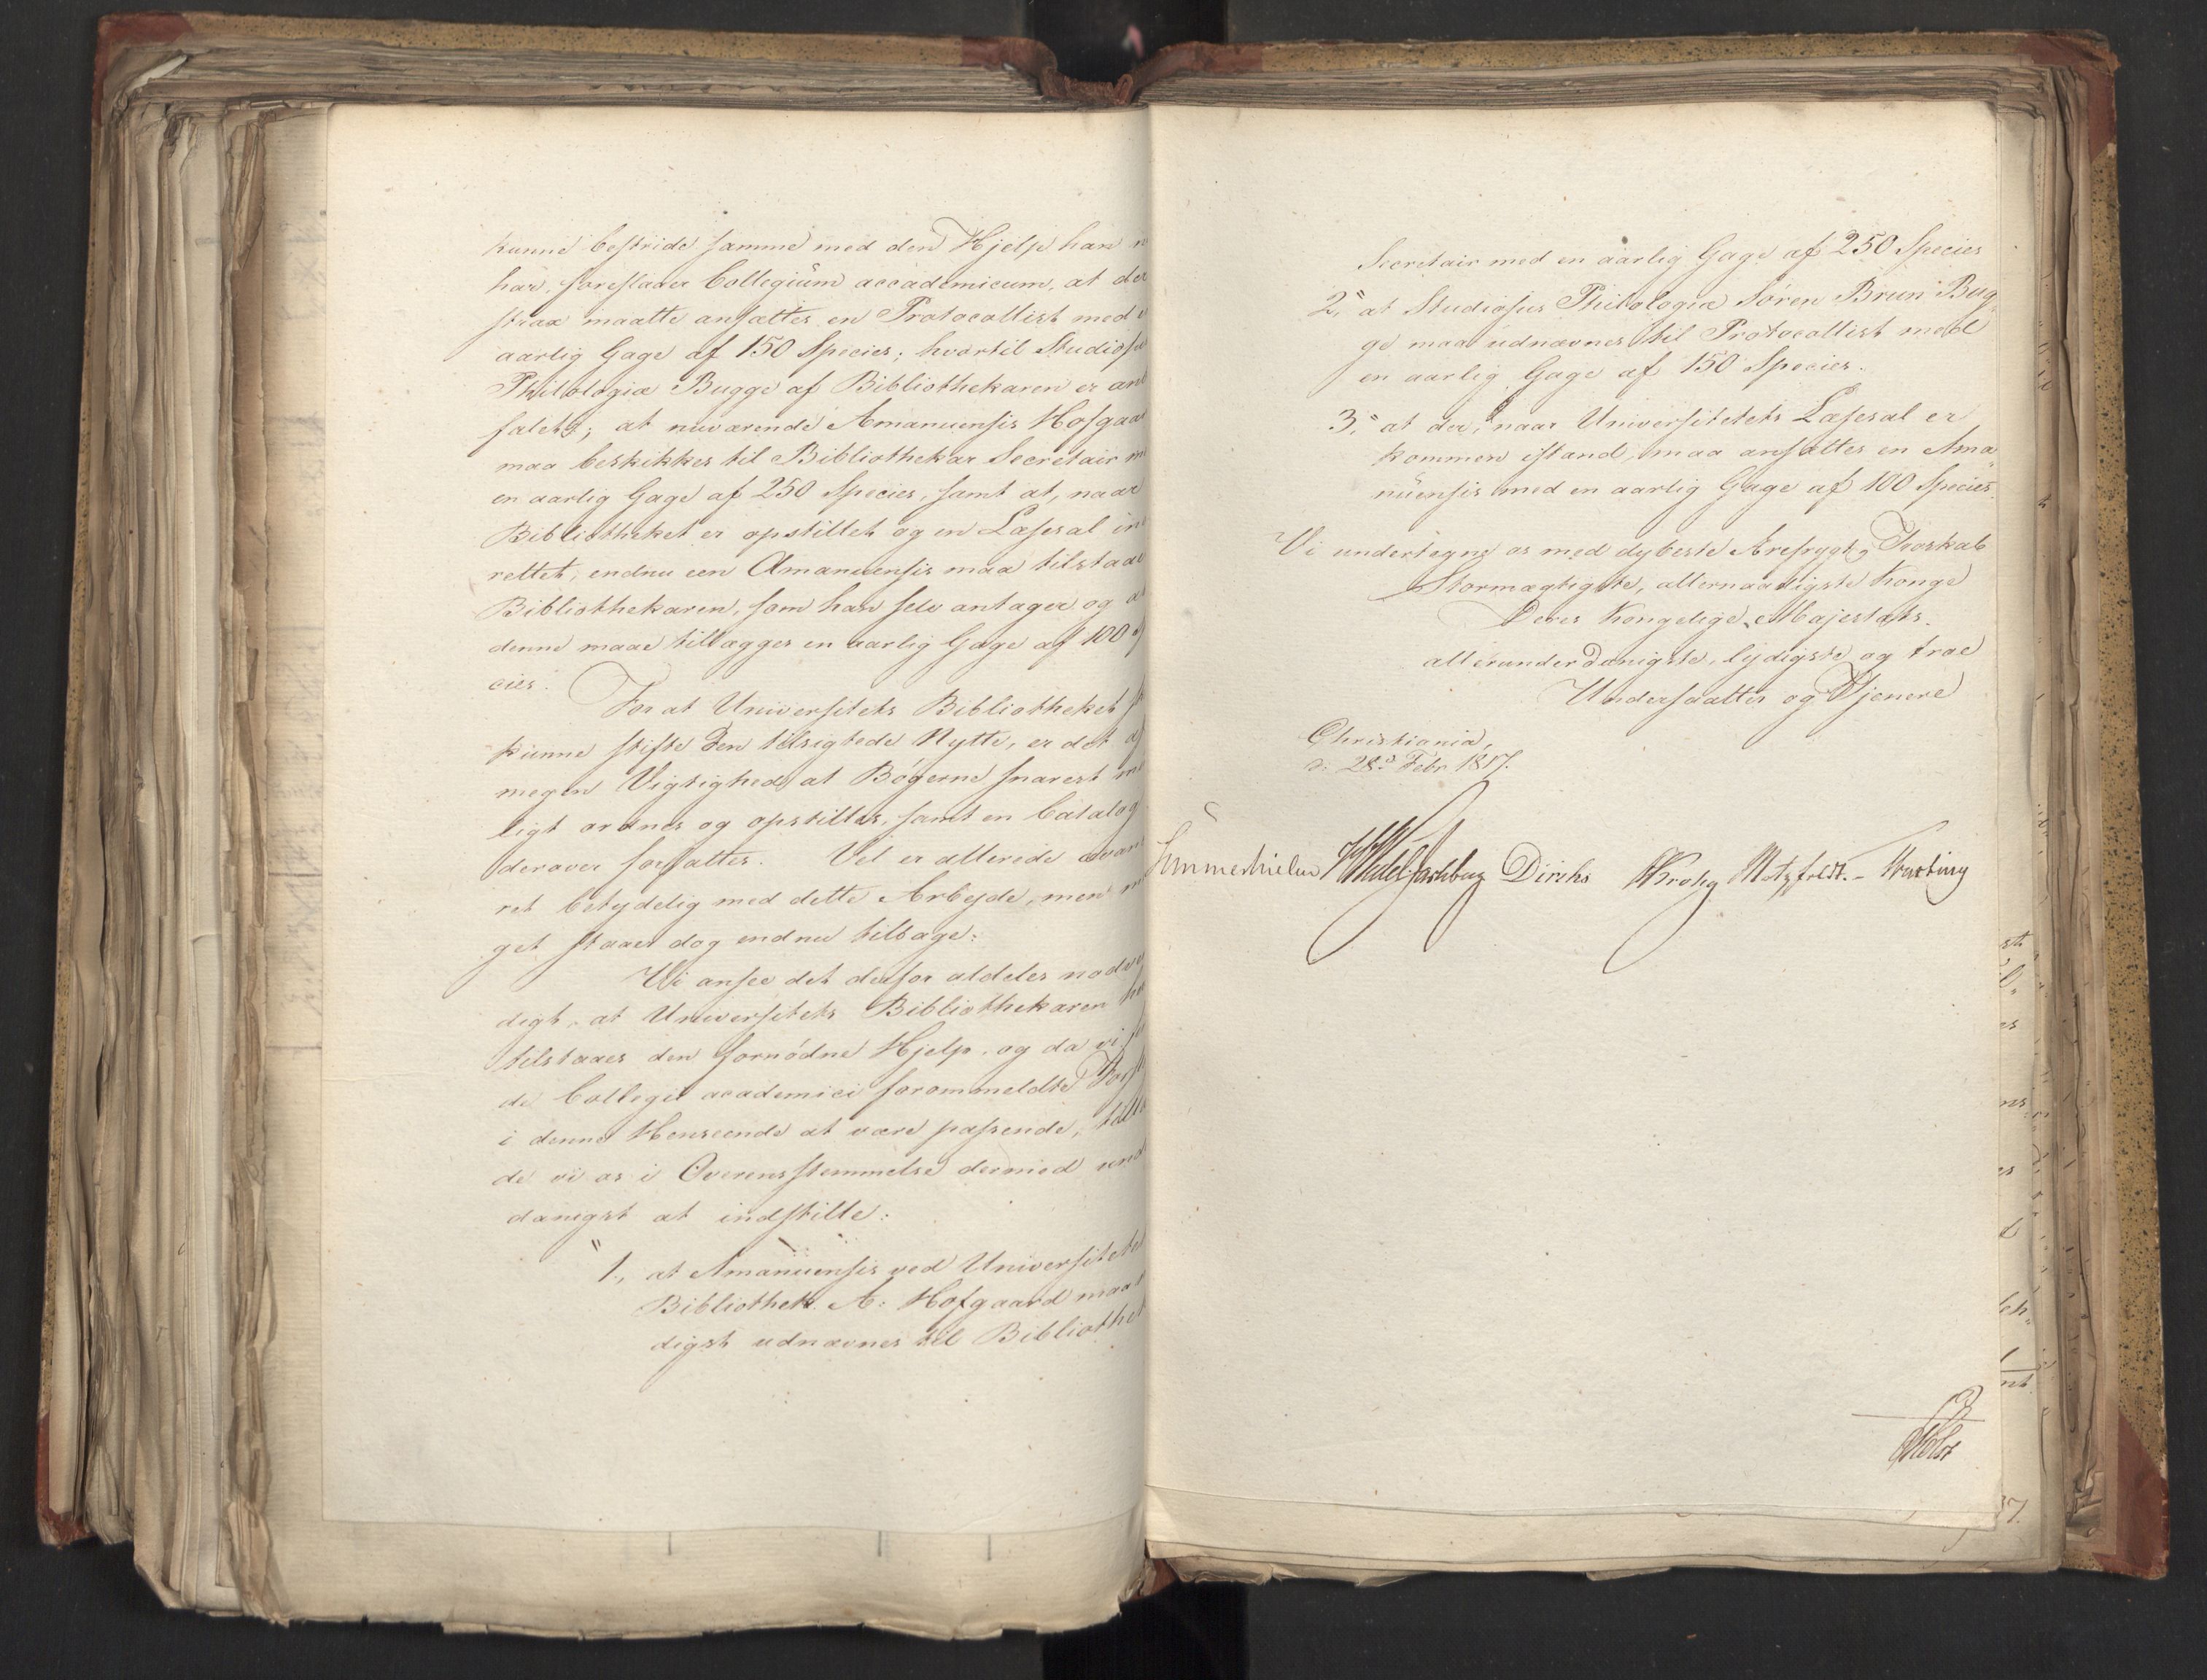 kunne bestride samme med den Hjelp han n
har, foreslaaer Collegium accademicum, at der
strax maatte ansættes en Protocollist med e
aarlig Gage af 150 Species; hvortil Studiosu
Philologiæ Bugge af Bibliothekaren er anb
falet; at nuværende Amanuensis Hofgaar
maa beskikkes til Bibliothekar Secretair m
en aarlig Gage af 250 Species, samt at, naar
Bibliotheket er opstillet og en Læsesal ind
rettet, endnu een Amanuensis maa tilstaae
Bibliothekaren, som han selv antager og at
denne maae tillægges en aarlig Gage af 100 S
cies.
For at Universitets Bibliotheket s
kunne stifte den tilsigtede Nytte, er det af
megen Vigtighed at Bøgerne snarest mu
ligt ordnes og opstilles, samt en Catalog
derover forfattes. Vel er allerede avan
ret betydelig med dette Arbejde, men me
get staaer dog endnu tilbage.
Vi ansee det derfor aldeles nødve
digt, at Universitets Bibliothekaren
tilstaaes den fornødne Hjelp, og da vi
de Collegii academici forommeldte Forsl
i denne Henseende at være passende, till
de vi os i Overensstemmelse dermed und
danigst at indstille:
1, at Amanuensis ved Universitets
Bibliothek A: Hofgaard maa
digst udnævnes til Bibliothek
Secretair med en aarlig Gage af 250 Species
2, at Studiosus Philologiæ Søren Brun Bug
ge maa udnævnes til Protocollist med
en aarlig Gage af 150 Species.
3, at der, naar Universitetets Læsesal er
kommen istand, maa ansættes en Ama
nuensis med en aarlig Gage af 100 Species.
Vi undertegne os med dybeste Ærefrygt og Troskab
Stormægtigste, allernaadigste Konge
Deres Kongelige Majestæts
allerunderdanigste, lydigste og troe
Undersaatter og Tjenere
Christiania,
d. 28d Febr 1817.
Sommerhielm Wedel Jarlsberg Diriks Krohg Motzfeldt. Hvas Treschow
Holst